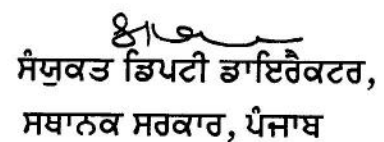 ਸੰਯੁਕਤ ਡਿਪਟੀ ਡਾਇਰੈਕਟਰ,
ਸਥਾਨਕ ਸਰਕਾਰ, ਪੰਜਾਬ